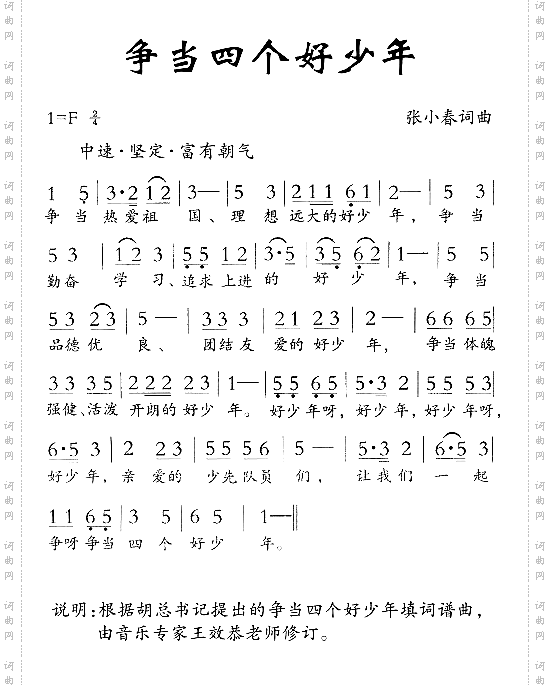 争当四个好少年
1=F 2/4 张小春词曲
中速·坚定·富有朝气
1 5 | 3·2 1 2 | 3— | 5 3 | 2 1 1 6 1 | 2— | 5 3 |
争 当 热爱祖 国、理 想 远大的好少 年，争 当
5 3 | 1 2 3 | 5 5 1 2 | 3·5 | 3 5 6 2 | 1— | 5 5 |
勤奋 学 习、追求上进 的 好 少 年，争 当
5 3 2 3 | 5 — | 3 3 3 | 2 1 2 3 | 2 — | 6 6 6 5 |
品德优 良、 团结友 爱的好少 年， 争当体魄
3 3 3 5 | 2 2 2 2 3 | 1— | 5 5 6 5 | 5·3 2 | 5 5 5 3 |
强健、活泼 开朗的好少 年。 好少年呀，好少年，好少年呀，
6·5 3 | 2 2 3 | 5 5 5 6 | 5 — | 5·3 2 | 6·5 3 |
好少年，亲 爱的 少先队员 们， 让我们 一 起
1 1 6 5 | 3 5 | 6 5 | 1—‖
争呀争当 四 个 好少 年。
说明：根据胡总书记提出的争当四个好少年填词谱曲，
由音乐专家王效恭老师修订。
词曲网
词曲网
词曲网
词曲网
词曲网
词曲网
词曲网
词曲网
词曲网
词曲网
词曲网
词曲网